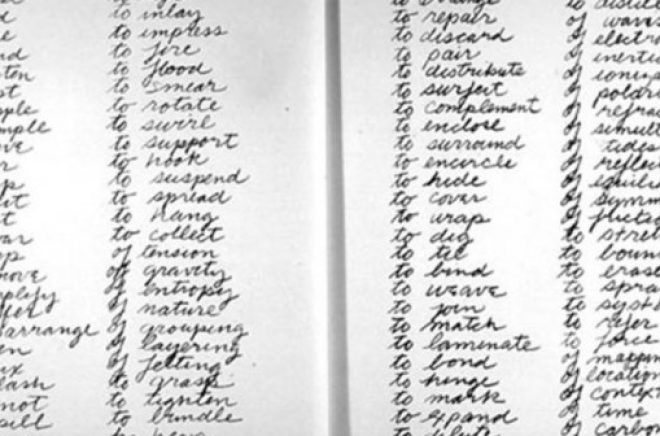 ten
ple
mple
plify
arrange
lash
not
to inlay
to impress
to fire
to flood
to smear
to rotate
to swirl
to support
to hook
to suspend
to spread
to hang
to collect
of tension
of gravity
of entropy
of nature
of grouping
of layering
of felting
to grasp
to tighten
to bundle
to repair
to discard
to pair
to distribute
to surfeit
to complement
to enclose
to surround
to encircle
to hide
to cover
to wrap
to dig
to tie
to bind
to weave
to join
to match
to laminate
to bond
to hinge
to mark
to expand
to dilute
of waves
of electro
of inertia
of ioniz
of polari
of refrac
of simult
of tides
of reflec
of equilib
of symm
of frictio
to stret
to boun
to erase
to spra
to syste
to refer
to force
of mappin
of location
of context
of time
of carbon